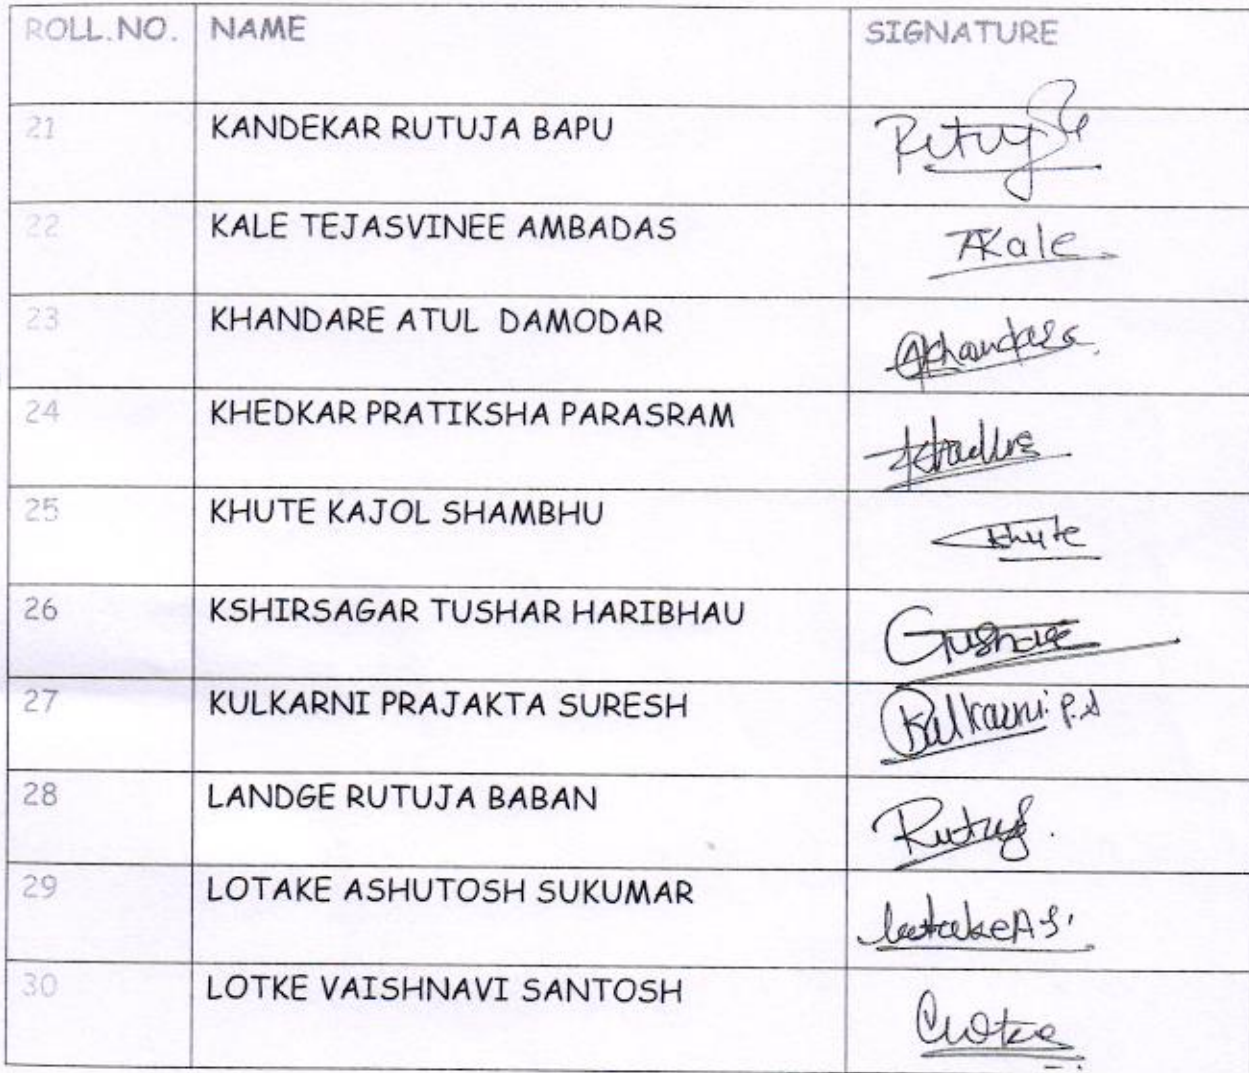 ROLL.NO. NAME SIGNATURE
21 KANDEKAR RUTUJA BAPU
22 KALE TEJASVINEE AMBADAS TKale
23 KHANDARE ATUL DAMODAR
24 KHEDKAR PRATIKSHA PARASRAM
25 KHUTE KAJOL SHAMBHU Khute
26 KSHIRSAGAR TUSHAR HARIBHAU
27 KULKARNI PRAJAKTA SURESH Kulkarni P.S
28 LANDGE RUTUJA BABAN
29 LOTAKE ASHUTOSH SUKUMAR Lotake A S.
30 LOTKE VAISHNAVI SANTOSH